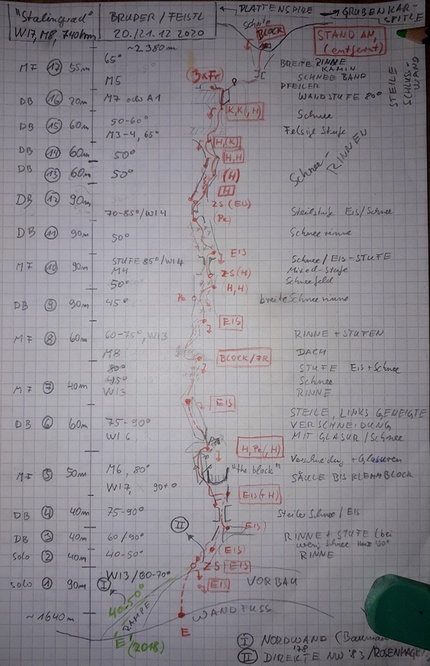 "Stalingrad"
WI7, M8, 740hm
BRUDER / FEISTL
20./21.12 2020
← PLATTENSPITZE → GRUBENKAR-
SPITZE
Scharte
BLOCK
STAND AN
(entfernt)
~ 2.380 m
MF 17 55m
65°
M5
3xFr
BREITE RINNE
KAMIN
SCHNEEBAND
PFEILER
STEILE
SCHLUSS
WAND
DB 16 20m
M7 oder A1
WANDSTUFE 80°
K, K, H
Schnee
DB 15 60m
50-60°
M3-4, 65°
Felsige Stufe
H, K
DB 14 60m
50°
H, H
DB 13 60m
50°
(H)
H
Schnee-
RINNEN
DB 12 90m
ZS (EIS)
70-85°/WI4
Steilstufe Eis/Schnee
DB 11 90m
50°
Schneerinne
EIS
MF 10 90m
STUFE 85°/WI4
M4
50°
ZS (H)
H, H
Schnee/EIS-STUFE
Mixed-Stufe
Schneefeld
DB 9 90m
45°
breite Schneerinne
EIS
MF 8 60m
60-75°, WI3
M8
RINNE + STUFEN
DACH
BLOCK/FR
80°
45°
WI3
STUFE Eis+Schnee
Schnee
RINNE
MF 7 40m
EIS
DB 6 60m
75-90°
WI6
STEILE, LINKS GENEIGTE
VERSCHNEIDUNG
MIT GLASUR/Schnee
H, Pe, H
MF 5 50m
M6, 80°
WI7, 90°
"the block"
Verschneidung + Glasuren
SÄULE BIS KLEMMBLOCK
EIS + H
DB 4 40m
75-90°
Steiler Schnee/Eis
II
EIS
DB 3 40m
60/90°
RINNE + STUFE (bei
wenig Schnee
solo 2 40m
40-50°
EIS
RINNE
WI3/80-70°
ZS EIS
solo 1 90m
EIS
VORBAU
I
40-50°
RAMPE
~1640m
WANDFUSS
E (2018)
E
I NORDWAND
II DIREKTE NW